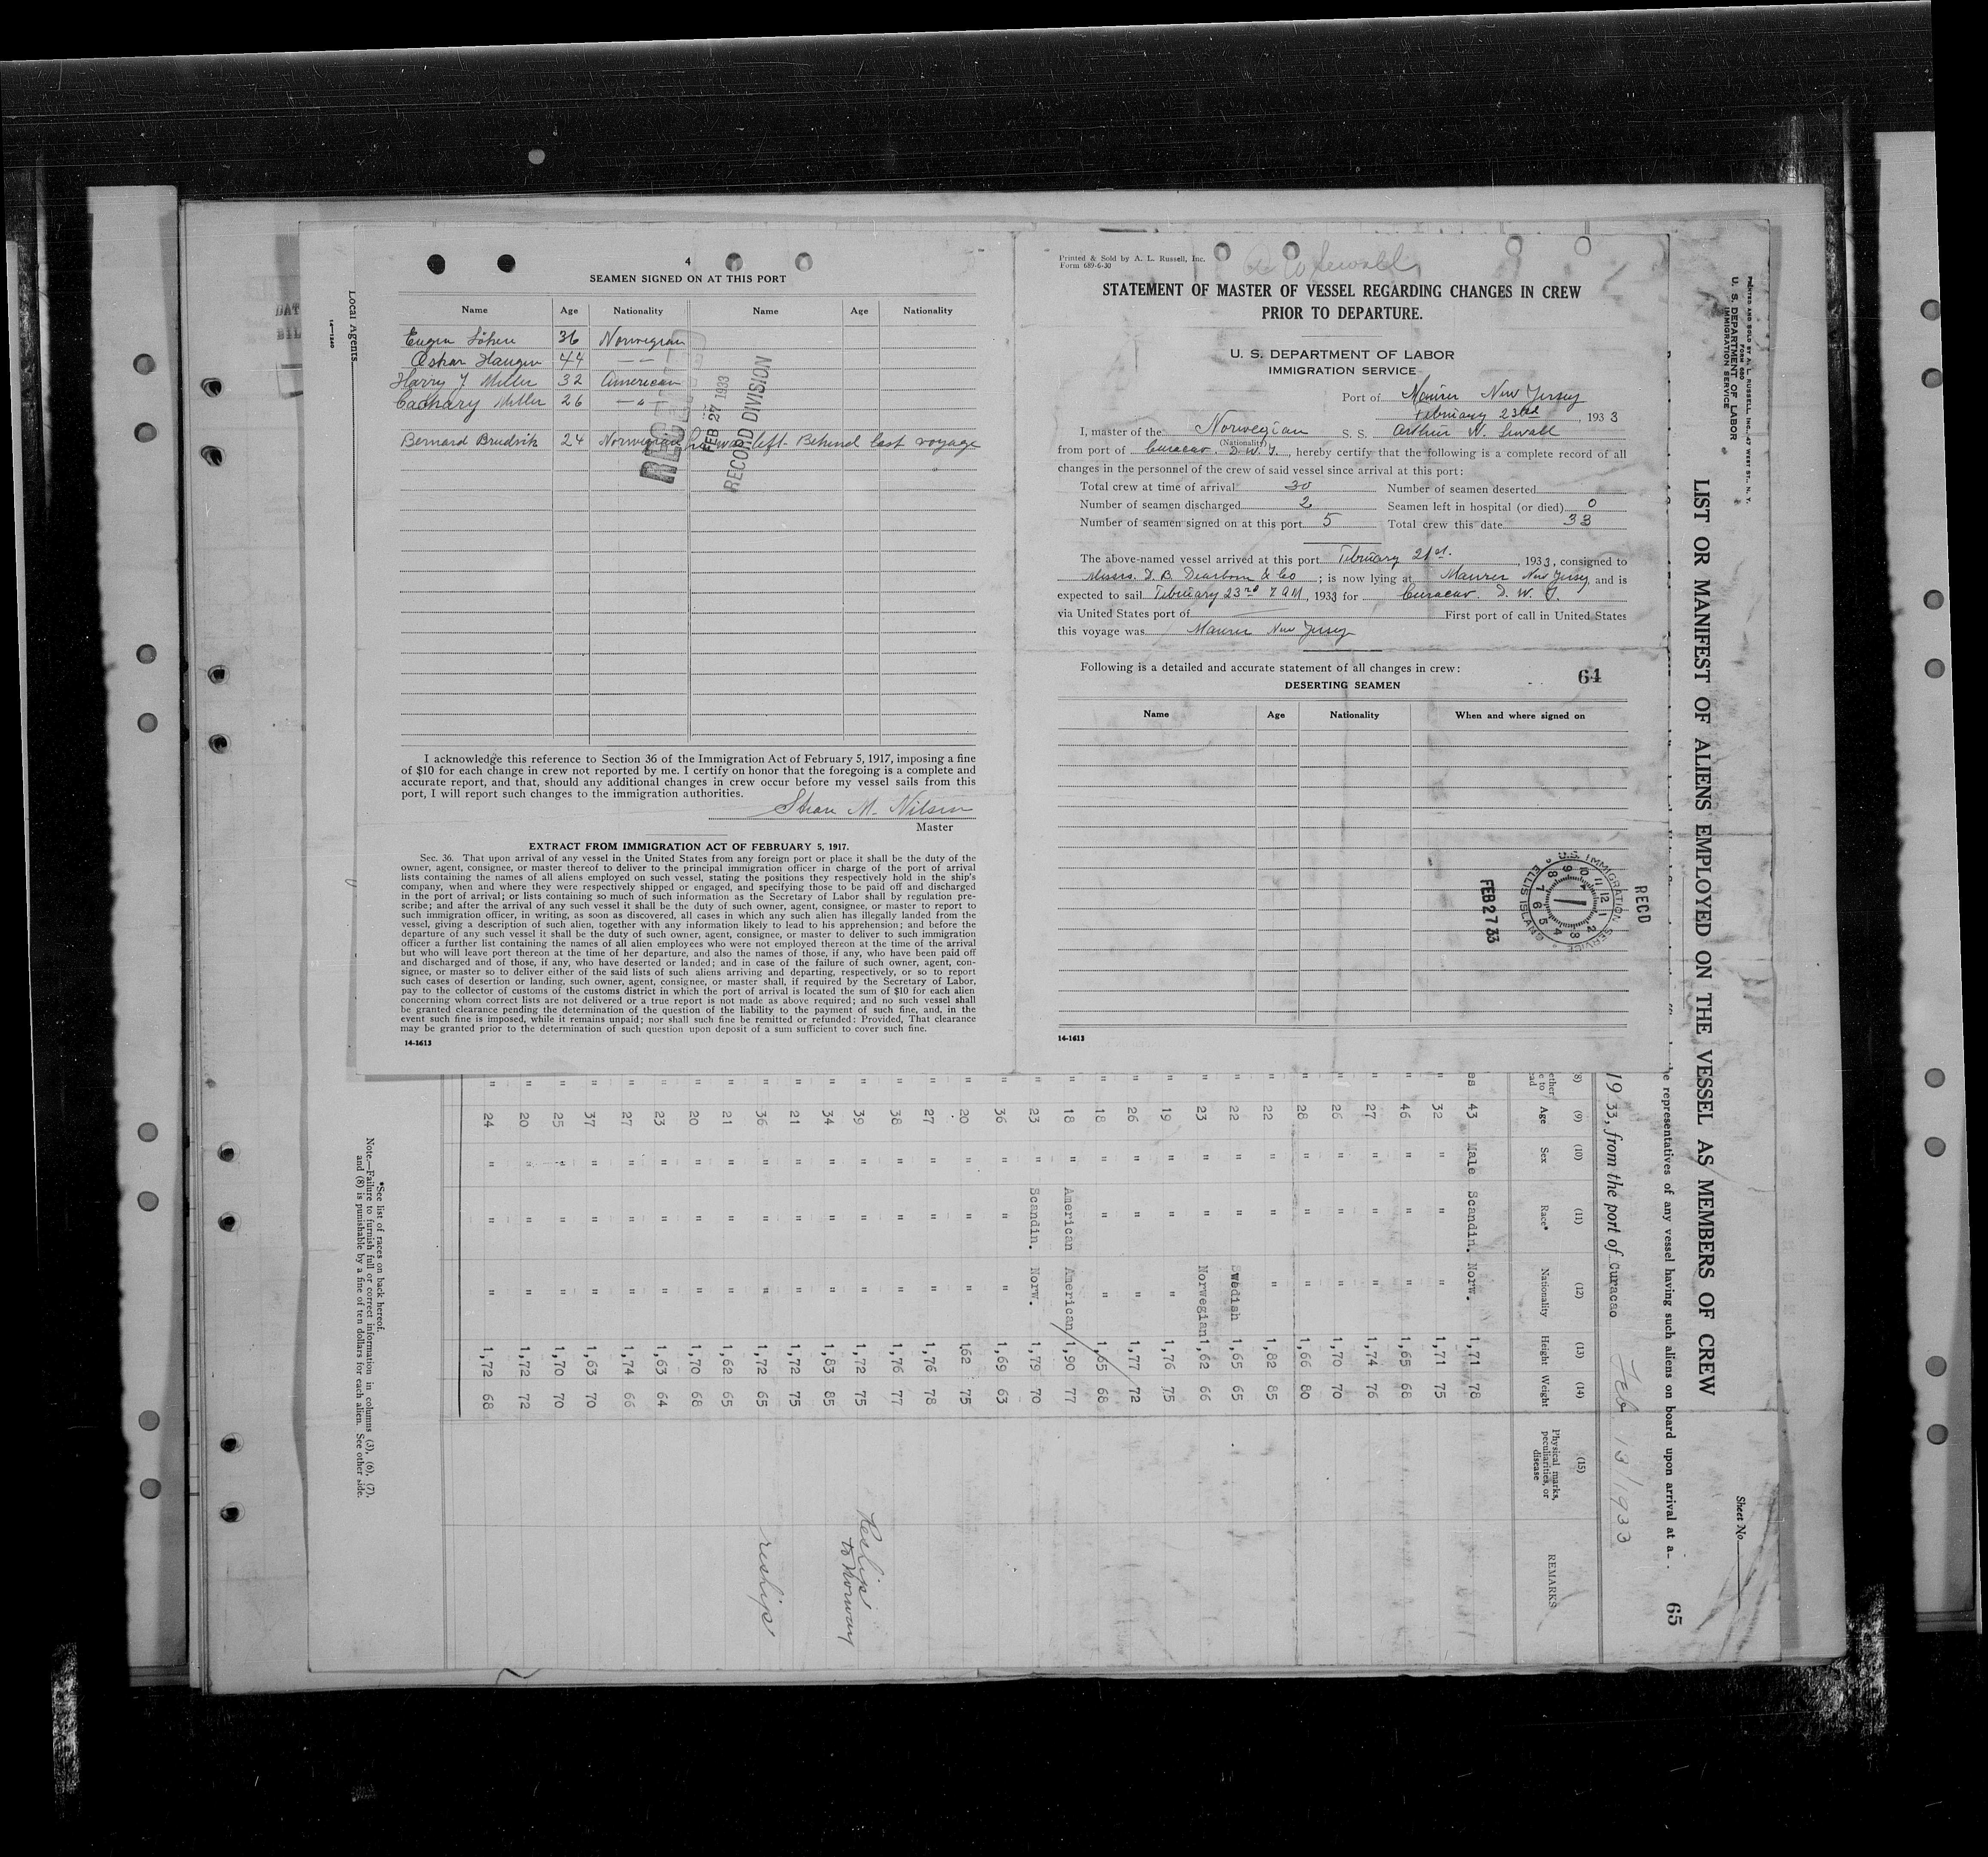 4
SEAMEN SIGNED ON AT THIS PORT
Name Age Nationality Name Age Nationality
Eugen 36 Norwegian
Oskar Haugen 44 — —
Harry J Miller 32 American
Cachary Miller 26 — " —
Bernard Brudvik 24 Norwegian he was left Behind last voyage
RECEIVED
FEB 27 1933
RECORD DIVISION
I acknowledge this reference to Section 36 of the Immigration Act of February 5, 1917, imposing a fine
of $10 for each change in crew not reported by me. I certify on honor that the foregoing is a complete and
accurate report, and that, should any additional changes in crew occur before my vessel sails from this
port, I will report such changes to the immigration authorities.
M. Nilsen
Master
EXTRACT FROM IMMIGRATION ACT OF FEBRUARY 5, 1917.
Sec. 36. That upon arrival of any vessel in the United States from any foreign port or place it shall be the duty of the
owner, agent, consignee, or master thereof to deliver to the principal immigration officer in charge of the port of arrival
lists containing the names of all aliens employed on such vessel, stating the positions they respectively hold in the ship's
company, when and where they were respectively shipped or engaged, and specifying those to be paid off and discharged
in the port of arrival; or lists containing so much of such information as the Secretary of Labor shall by regulation pre-
scribe; and after the arrival of any such vessel it shall be the duty of such owner, agent, consignee, or master to report to
such immigration officer, in writing, as soon as discovered, all cases in which any such alien has illegally landed from the
vessel, giving a description of such alien, together with any information likely to lead to his apprehension; and before the
departure of any such vessel it shall be the duty of such owner, agent, consignee, or master to deliver to such immigration
officer a further list containing the names of all alien employees who were not employed thereon at the time of the arrival
but who will leave port thereon at the time of her departure, and also the names of those, if any, who have been paid off
and discharged and of those, if any, who have deserted or landed; and in case of the failure of such owner, agent, con-
signee, or master so to deliver either of the said lists of such aliens arriving and departing, respectively, or so to report
such cases of desertion or landing, such owner, agent, consignee, or master shall, if required by the Secretary of Labor,
pay to the collector of customs of the customs district in which the port of arrival is located the sum of $10 for each alien
concerning whom correct lists are not delivered or a true report is not made as above required; and no such vessel shall
be granted clearance pending the determination of the question of the liability to the payment of such fine, and, in the
event such fine is imposed, while it remains unpaid; nor shall such fine be remitted or refunded: Provided, That clearance
may be granted prior to the determination of such question upon deposit of a sum sufficient to cover such fine.
14-1613
Local Agents.
14-1240
Printed & Sold by A. L. Russell, Inc.
Form 689-6-30
A W Sewall
STATEMENT OF MASTER OF VESSEL REGARDING CHANGES IN CREW
PRIOR TO DEPARTURE.
U. S. DEPARTMENT OF LABOR
IMMIGRATION SERVICE
Port of Maurer New Jersey
February 23rd, 1933
I, master of the Norwegian S. S. Arthur W. Sewall
(Nationality)
from port of Curacao. D. W. I., hereby certify that the following is a complete record of all
changes in the personnel of the crew of said vessel since arrival at this port:
Total crew at time of arrival 30 Number of seamen deserted
Number of seamen discharged 2 Seamen left in hospital (or died) 0
Number of seamen signed on at this port 5 Total crew this date 33
The above-named vessel arrived at this port February 21st., 1933, consigned to
Messrs. D. B. Dearborn & Co; is now lying at Maurer New Jersey, and is
expected to sail February 23rd 7 AM, 1933 for Curacao. D. W. I.
via United States port of First port of call in United States
this voyage was Maurer New Jersey
Following is a detailed and accurate statement of all changes in crew:
64
DESERTING SEAMEN
Name Age Nationality When and where signed on
RECD
U.S. IMMIGRATION SERVICE ELLIS ISLAND
12 1 2 3 4 5 6 7 8 9 10 11
FEB 27 33
14-1613
PRINTED AND SOLD BY A. L. RUSSELL, INC., 47 WEST ST., N. Y.
FORM 680
U. S. DEPARTMENT OF LABOR
IMMIGRATION SERVICE
Sheet No.
LIST OR MANIFEST OF ALIENS EMPLOYED ON THE VESSEL AS MEMBERS OF CREW
he representatives of any vessel having such aliens on board upon arrival at a
65
1933, from the port of Curacao Feb 13/1933
(8) (9) (10) (11) (12) (13) (14) (15)
Age Sex Race* Nationality Height Weight Physical marks, peculiarities, or disease REMARKS
es 43 Male Scandin. Norw. 1,71 78
" 32 " " " 1,71 75
" 46 " " " 1,65 68
" 27 " " " 1,74 76
" 26 " " " 1,70 70
" 28 " " " 1,66 80
" 22 " " " 1,82 85
" 22 " " Swedish 1,65 65
" 23 " " Norwegian 1,62 66
" 19 " " " 1,76 75
" 26 " " " 1,77 72
" 18 " " " 1,65 68
" 18 " American American 1,90 77
" 23 " Scandin. Norw. 1,79 70
" 36 " " " 1,69 63
" 20 " " " 162 75
" 27 " " " 1,76 78
" 38 " " " 1,76 77
" 39 " " " 1,72 75 Reships to Norway
" 34 " " " 1,83 85
" 21 " " " 1,72 75
" 36 " " " 1,72 65 reships
" 21 " " " 1,62 65
" 20 " " " 1,70 68
" 23 " " " 1,63 64
" 27 " " " 1,74 66
" 37 " " " 1,63 70
" 25 " " " 1,70 70
" 20 " " " 1,72 72
" 24 " " " 1,72 68
*See list of races on back hereof.
Note.—Failure to furnish full or correct information in columns (3), (6), (7),
and (8) is punishable by a fine of ten dollars for each alien. See other side.